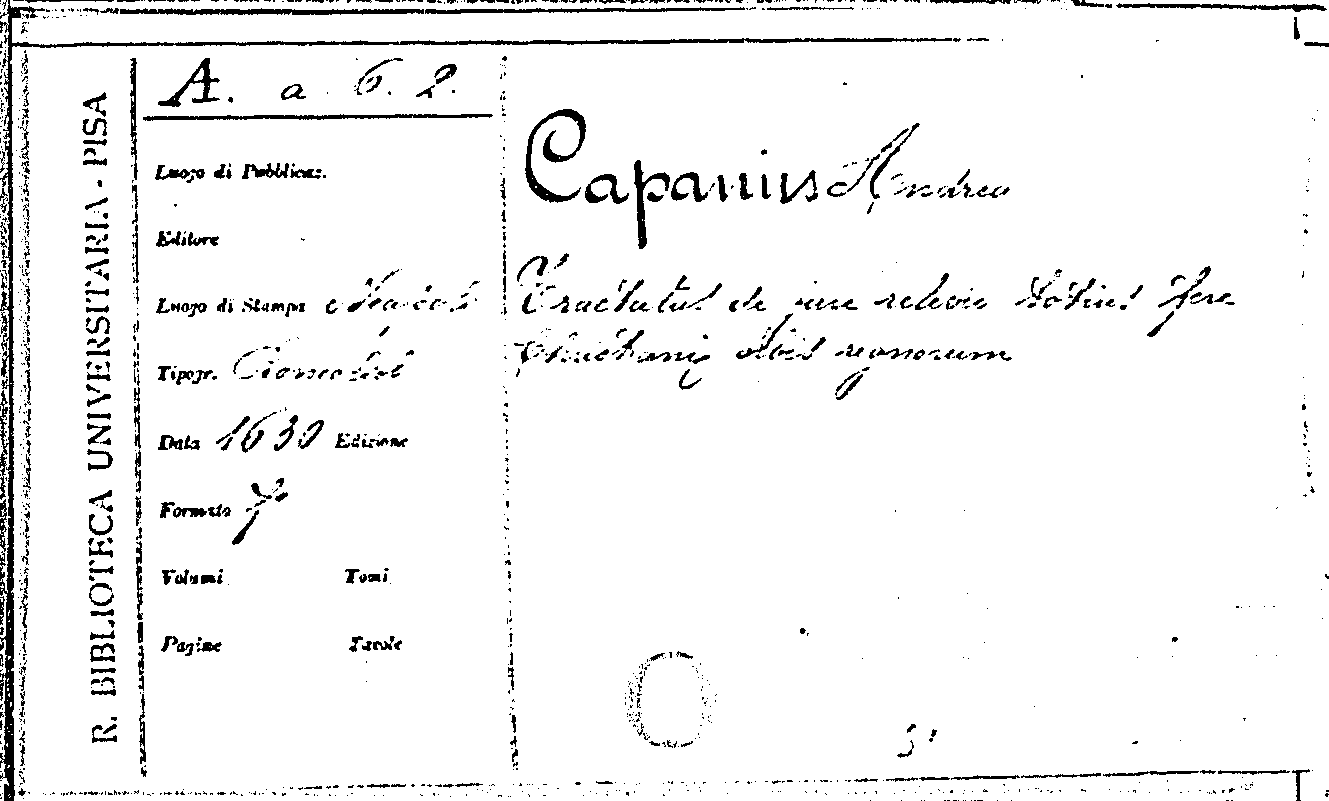 R. BIBLIOTECA UNIVERSITARIA - PISA
A. a. 6. 2.
Luogo di Pubblicaz.
Editore
Luogo di Stampa Napoli
Tipogr.
Data 1630 Edizione
Formato f°
Volumi Tomi
Pagine Tavole
Capanius Andrea
Tractatus de jure relevii totius fere
Christiani orbis regnorum